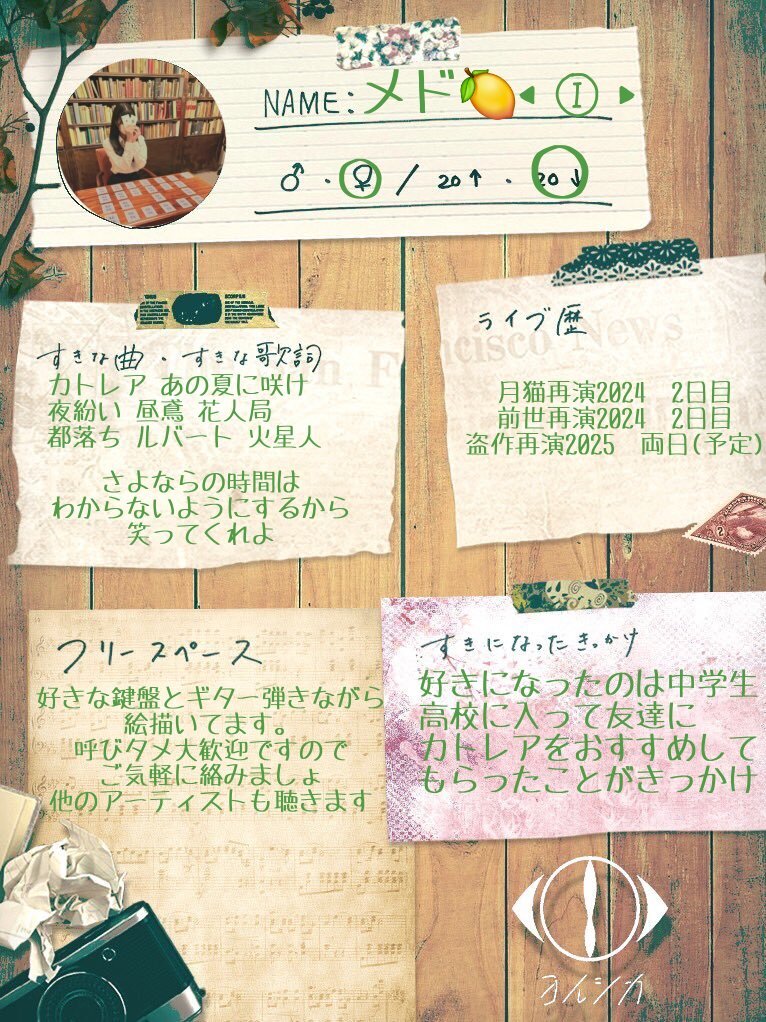 NAME: メド🍋 ◀ Ⓘ ▶
♂ ・ ♀ / 20↑ ・ 20↓
すきな曲 ・ すきな歌詞
カトレア あの夏に咲け
夜紛い 昼鳶 花人局
都落ち ルバート 火星人
さよならの時間は
わからないようにするから
笑ってくれよ
ライブ歴
月猫再演2024 2日目
前世再演2024 2日目
盗作再演2025 両日(予定)
フリースペース
好きな鍵盤とギター弾きながら
絵描いてます。
呼びタメ大歓迎ですので
ご気軽に絡みましょ
他のアーティストも聴きます
すきになったきっかけ
好きになったのは中学生
高校に入って友達に
カトレアをおすすめして
もらったことがきっかけ
ヨルシカ